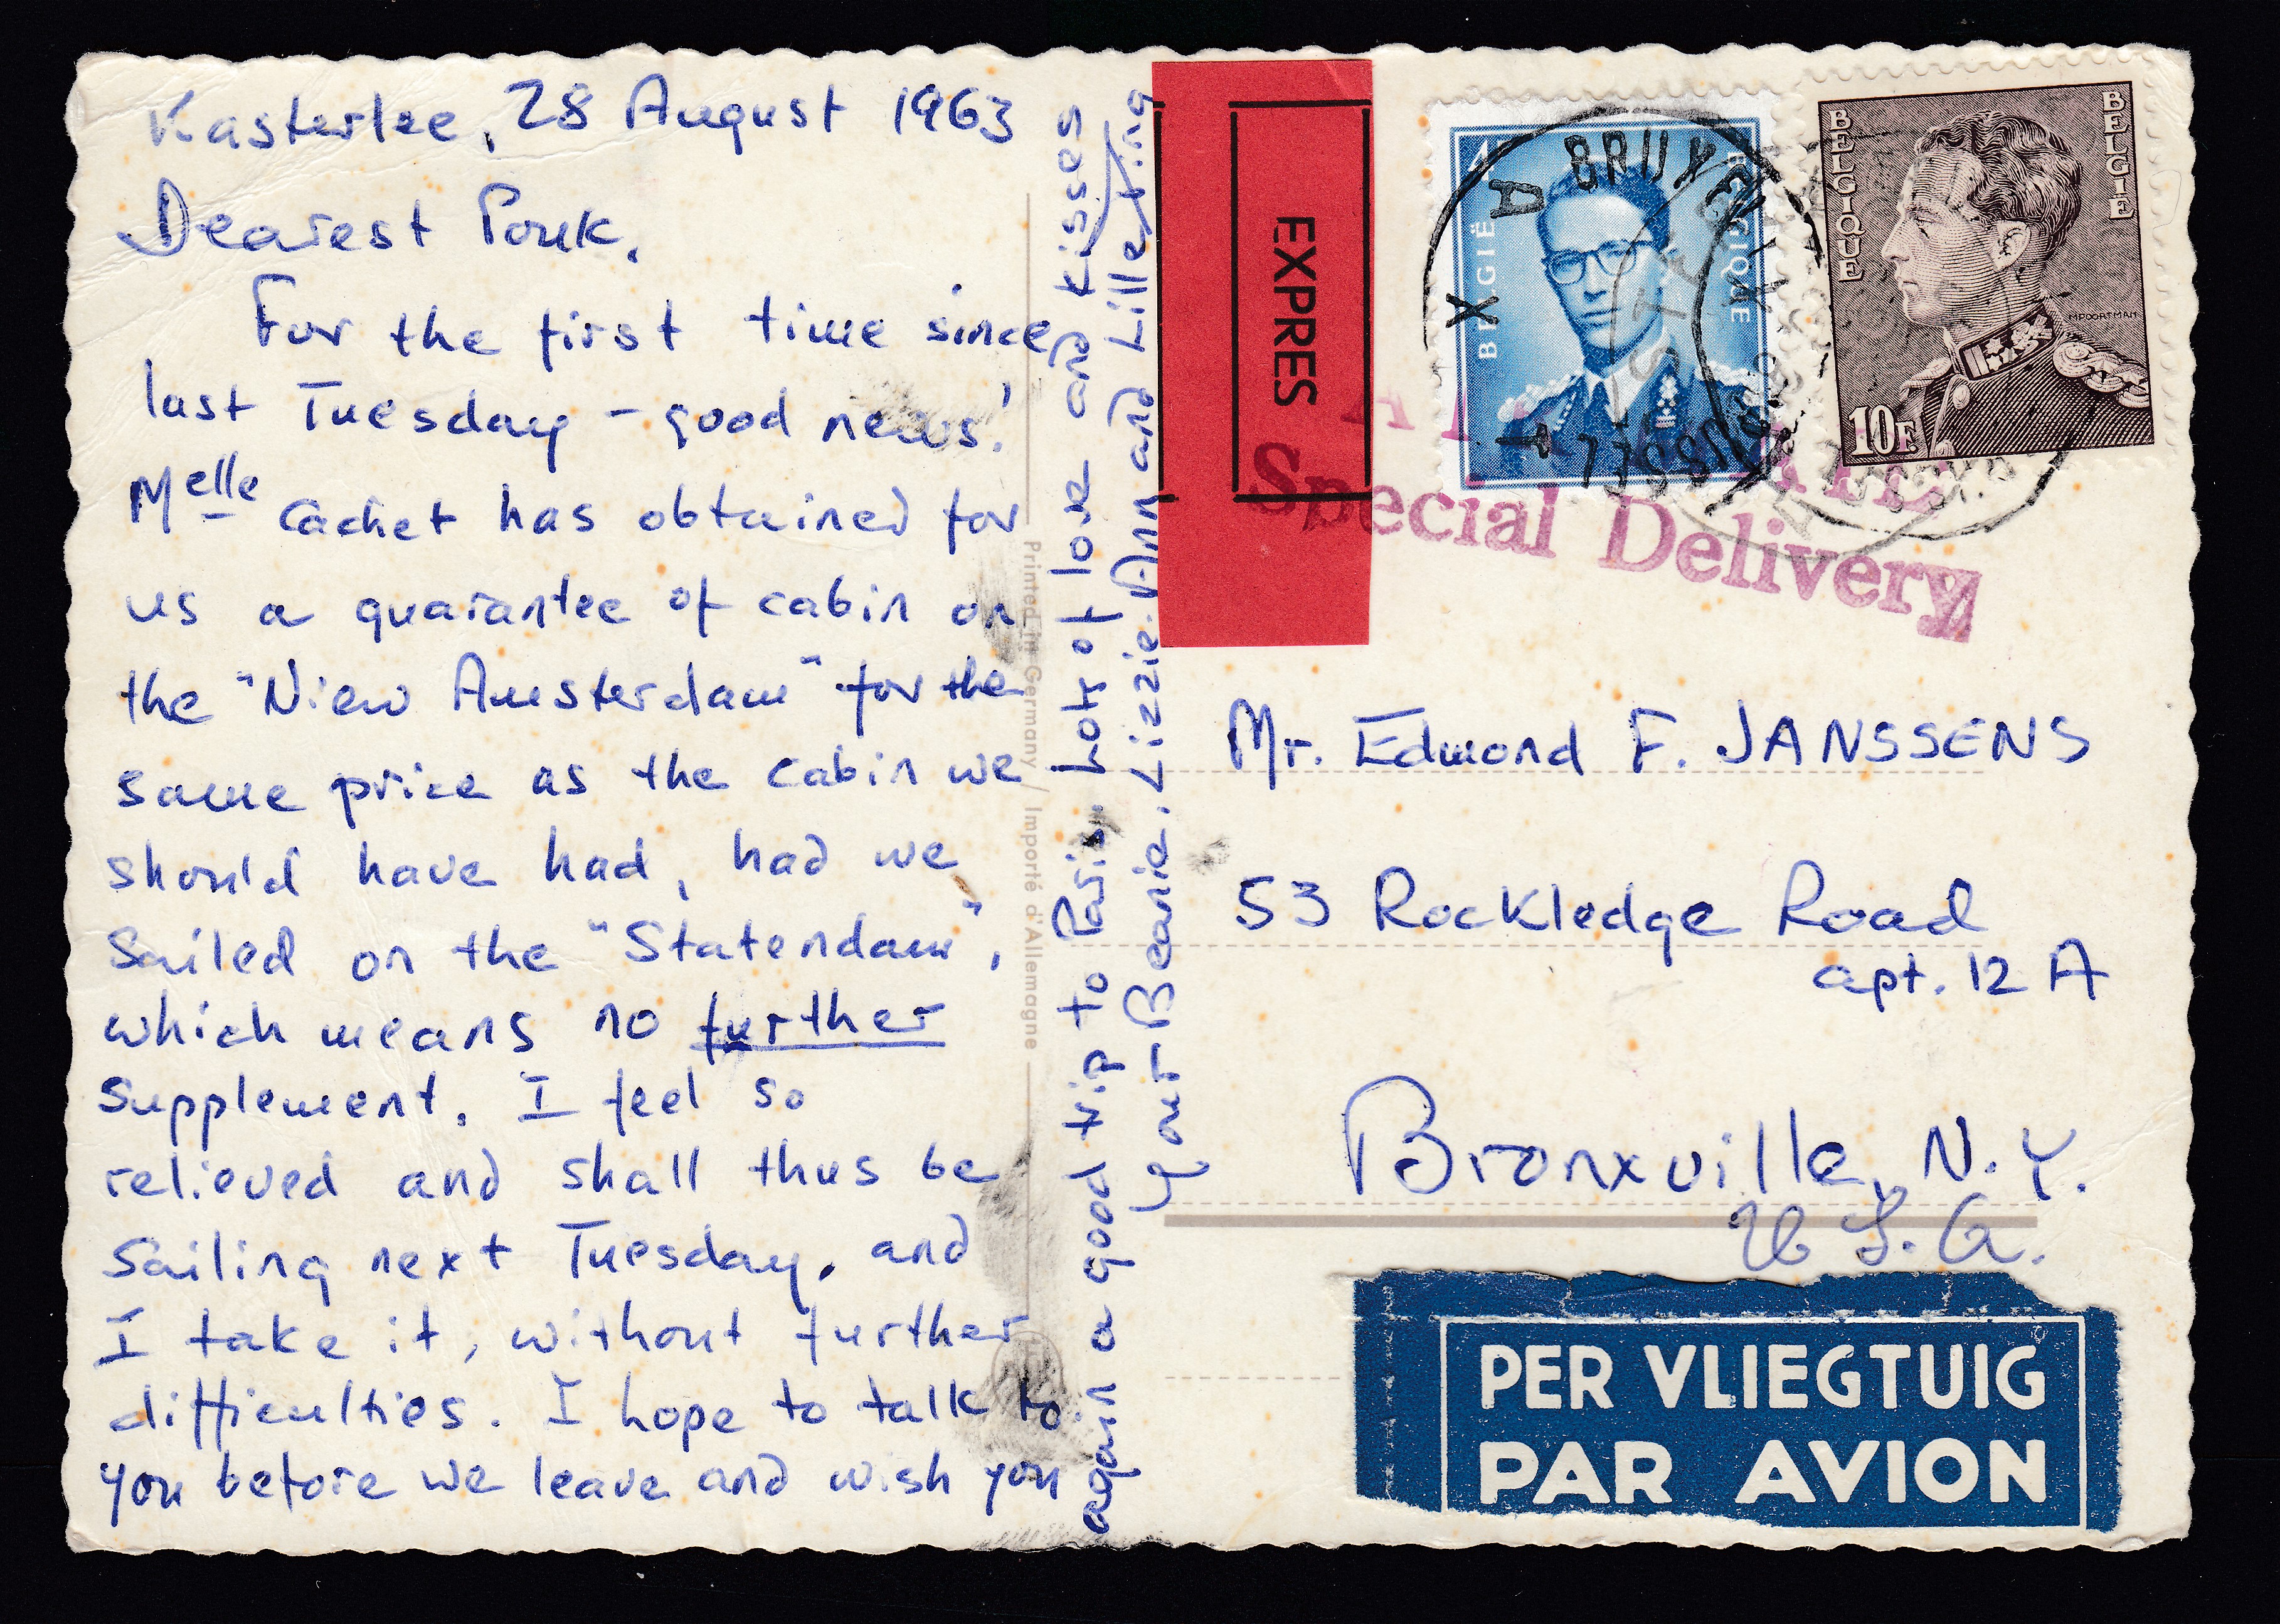 Kasterlee, 28 August 1963
Dearest Pouk.
For the first time since
last Tuesday – good news!
Melle Cachet has obtained for
us a guarantee of cabin on
the "Niew Amsterdam" for the
same price as the cabin we
should have had, had we
sailed on the "Statendam",
which means no further
supplement. I feel so
relieved and shall thus be
sailing next Tuesday, and
I take it, without further
difficulties. I hope to talk to
you before we leave and wish you
again a good trip to Paris. Lots of love and kisses
Your Beanie. Lizzie. Ann and Lillefting
Printed in Germany / Importé d'Allemagne
EXPRES
BELGIË
BELGIQUE
BRUXELLES X
BRUSSEL
A
BELGIQUE
BELGIE
M.POORTMAN
10F
AIR MAIL
Special Delivery
Mr. Edmond F. JANSSENS
53 Rockledge Road
apt. 12 A
Bronxville, N.Y.
U.S.A.
PER VLIEGTUIG
PAR AVION